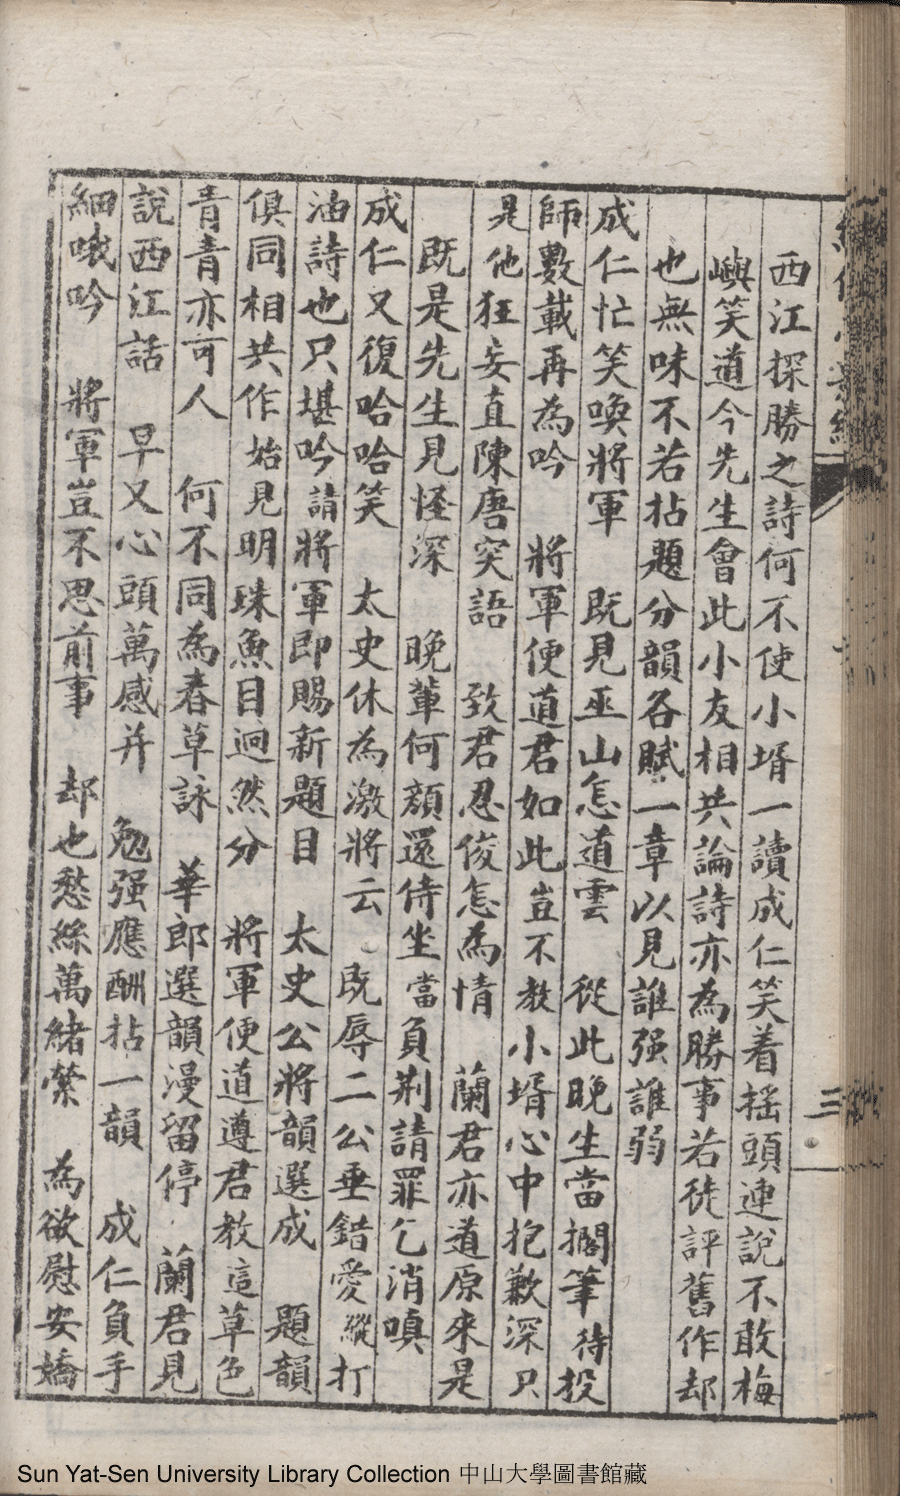 西江探勝之詩何不使小壻一讀成仁笑着搖頭連說不敢梅
嶼笑道今先生會此小友相共論詩亦為勝事若徒評舊作却
也無味不若拈題分韻各賦一章以見誰强誰弱
成仁忙笑喚將軍 既見巫山怎道雲 從此晚生當擱筆 待投
師數載再為吟 將軍便道君如此 豈不教小壻心中抱歉深 只
是他狂妄直陳唐突語 致君忍俊怎為情 蘭君亦道原來是
既是先生見怪深 晚輩何顏還侍坐 當負荆請罪乞消嗔
成仁又復哈哈笑 太史休為激將云 既辱二公垂錯愛 縱打
油詩也只堪吟 請將軍即賜新題目 太史公將韻選成 題韻
俱同相共作 始見明珠魚目迥然分 將軍便道遵君教 這草色
青青亦可人 何不同為春草詠 華郎選韻漫留停 蘭君見
說西江話 早又心頭萬感并 勉强應酬拈一韻 成仁負手
細哦吟 將軍豈不思前事 却也愁絲萬緒縈 為欲慰安嬌
三
Sun Yat-Sen University Library Collection 中山大學圖書館藏